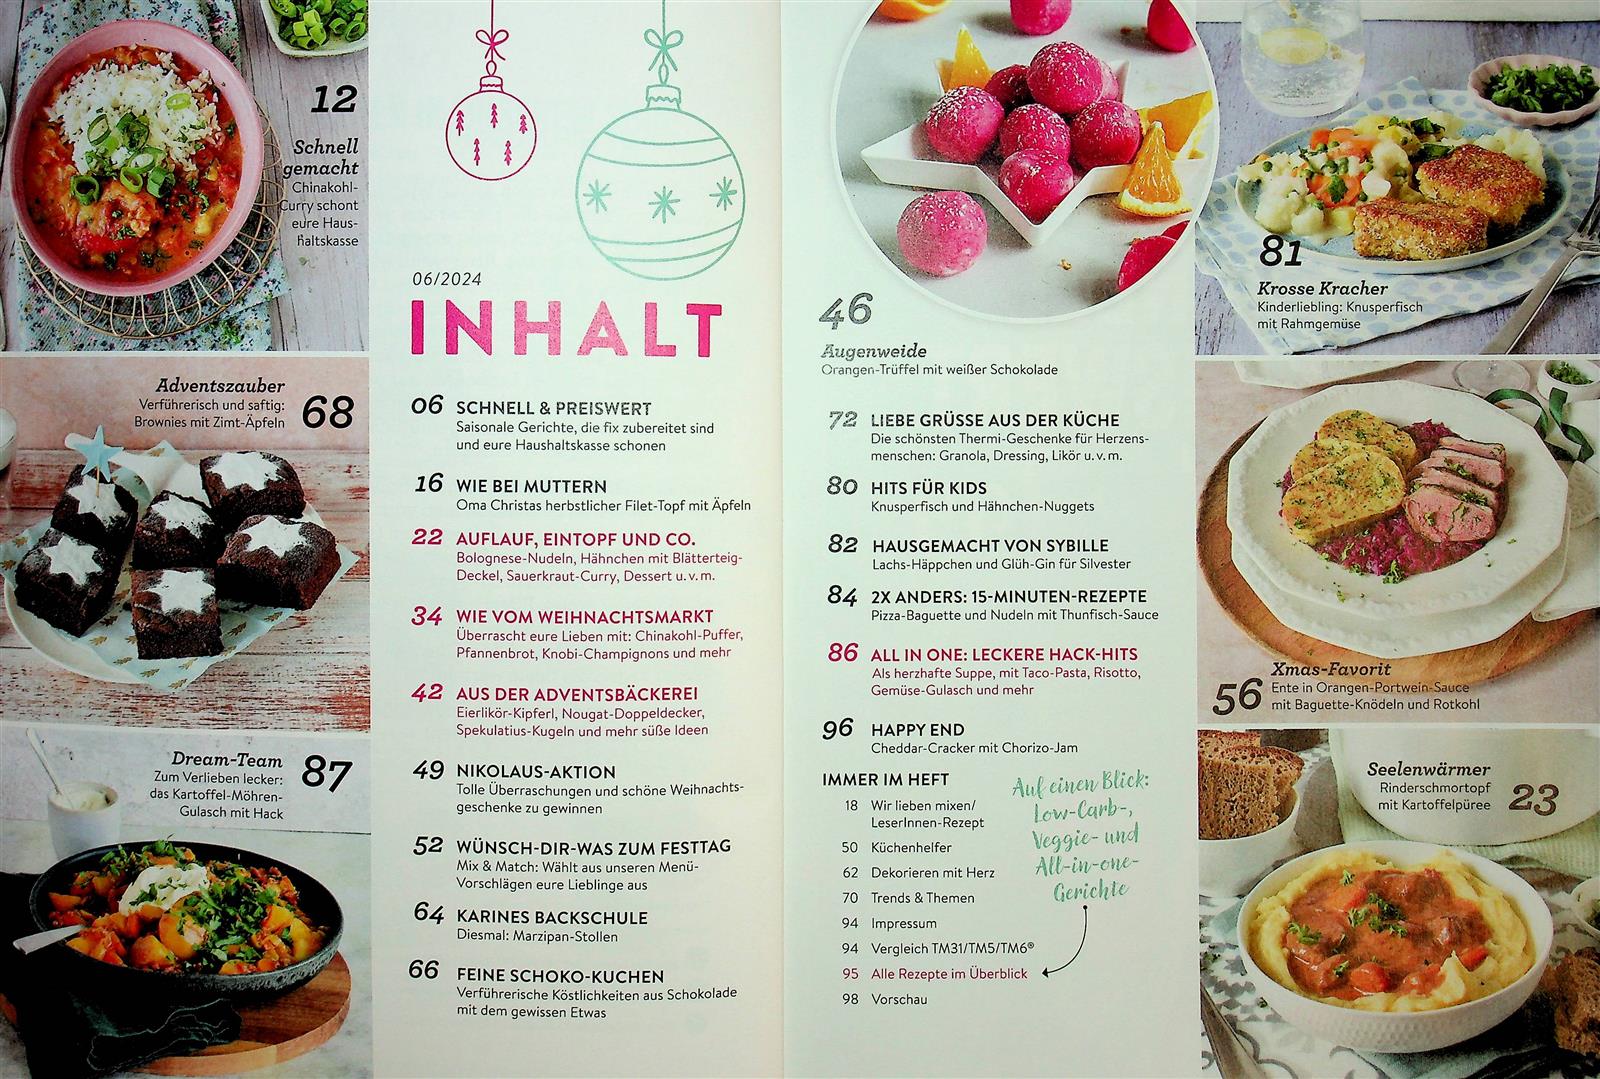 12
Schnell
gemacht
Chinakohl-
Curry schont
eure Haus-
haltskasse
Adventszauber
Verführerisch und saftig:
Brownies mit Zimt-Äpfeln
68
Dream-Team
Zum Verlieben lecker:
das Kartoffel-Möhren-
Gulasch mit Hack
87
06/2024
INHALT
06 SCHNELL & PREISWERT
Saisonale Gerichte, die fix zubereitet sind
und eure Haushaltskasse schonen
16 WIE BEI MUTTERN
Oma Christas herbstlicher Filet-Topf mit Äpfeln
22 AUFLAUF, EINTOPF UND CO.
Bolognese-Nudeln, Hähnchen mit Blätterteig-
Deckel, Sauerkraut-Curry, Dessert u. v. m.
34 WIE VOM WEIHNACHTSMARKT
Überrascht eure Lieben mit: Chinakohl-Puffer,
Pfannenbrot, Knobi-Champignons und mehr
42 AUS DER ADVENTSBÄCKEREI
Eierlikör-Kipferl, Nougat-Doppeldecker,
Spekulatius-Kugeln und mehr süße Ideen
49 NIKOLAUS-AKTION
Tolle Überraschungen und schöne Weihnachts-
geschenke zu gewinnen
52 WÜNSCH-DIR-WAS ZUM FESTTAG
Mix & Match: Wählt aus unseren Menü-
Vorschlägen eure Lieblinge aus
64 KARINES BACKSCHULE
Diesmal: Marzipan-Stollen
66 FEINE SCHOKO-KUCHEN
Verführerische Köstlichkeiten aus Schokolade
mit dem gewissen Etwas
46
Augenweide
Orangen-Trüffel mit weißer Schokolade
72 LIEBE GRÜSSE AUS DER KÜCHE
Die schönsten Thermi-Geschenke für Herzens-
menschen: Granola, Dressing, Likör u. v. m.
80 HITS FÜR KIDS
Knusperfisch und Hähnchen-Nuggets
82 HAUSGEMACHT VON SYBILLE
Lachs-Häppchen und Glüh-Gin für Silvester
84 2X ANDERS: 15-MINUTEN-REZEPTE
Pizza-Baguette und Nudeln mit Thunfisch-Sauce
86 ALL IN ONE: LECKERE HACK-HITS
Als herzhafte Suppe, mit Taco-Pasta, Risotto,
Gemüse-Gulasch und mehr
96 HAPPY END
Cheddar-Cracker mit Chorizo-Jam
IMMER IM HEFT
18 Wir lieben mixen/
LeserInnen-Rezept
50 Küchenhelfer
62 Dekorieren mit Herz
70 Trends & Themen
94 Impressum
94 Vergleich TM31/TM5/TM6®
95 Alle Rezepte im Überblick
98 Vorschau
Auf einen Blick:
Low-Carb-,
Veggie- und
All-in-one-
Gerichte
81
Krosse Kracher
Kinderliebling: Knusperfisch
mit Rahmgemüse
Xmas-Favorit
56 Ente in Orangen-Portwein-Sauce
mit Baguette-Knödeln und Rotkohl
Seelenwärmer
Rinderschmortopf
mit Kartoffelpüree
23